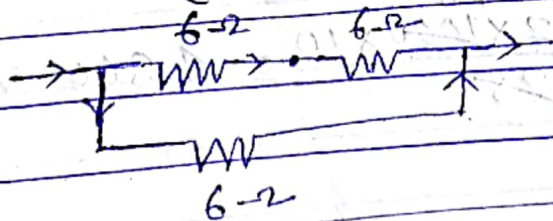 6-Ω 6-Ω
6-Ω